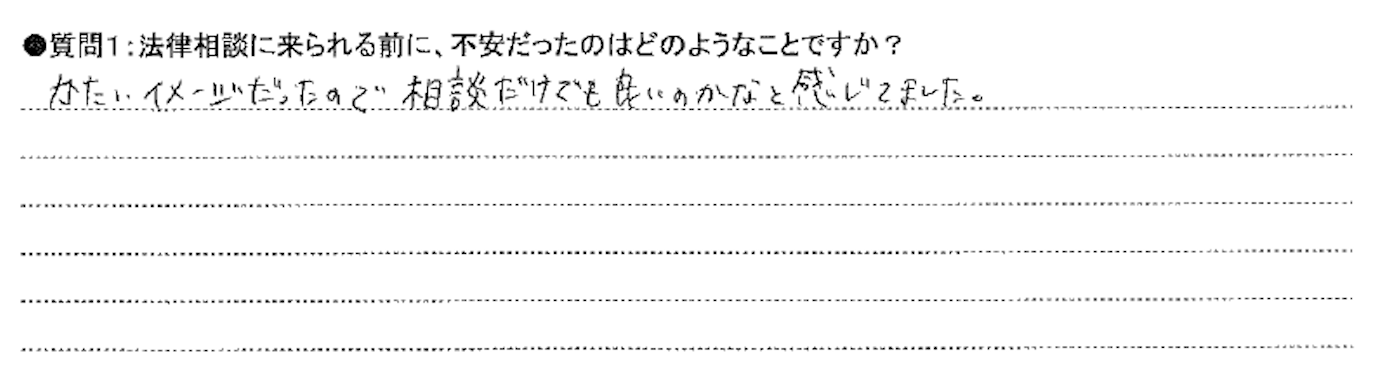 ●質問1:法律相談に来られる前に、不安だったのはどのようなことですか?
かたいイメージだったので 相談だけでも良いのかなと感じてました。